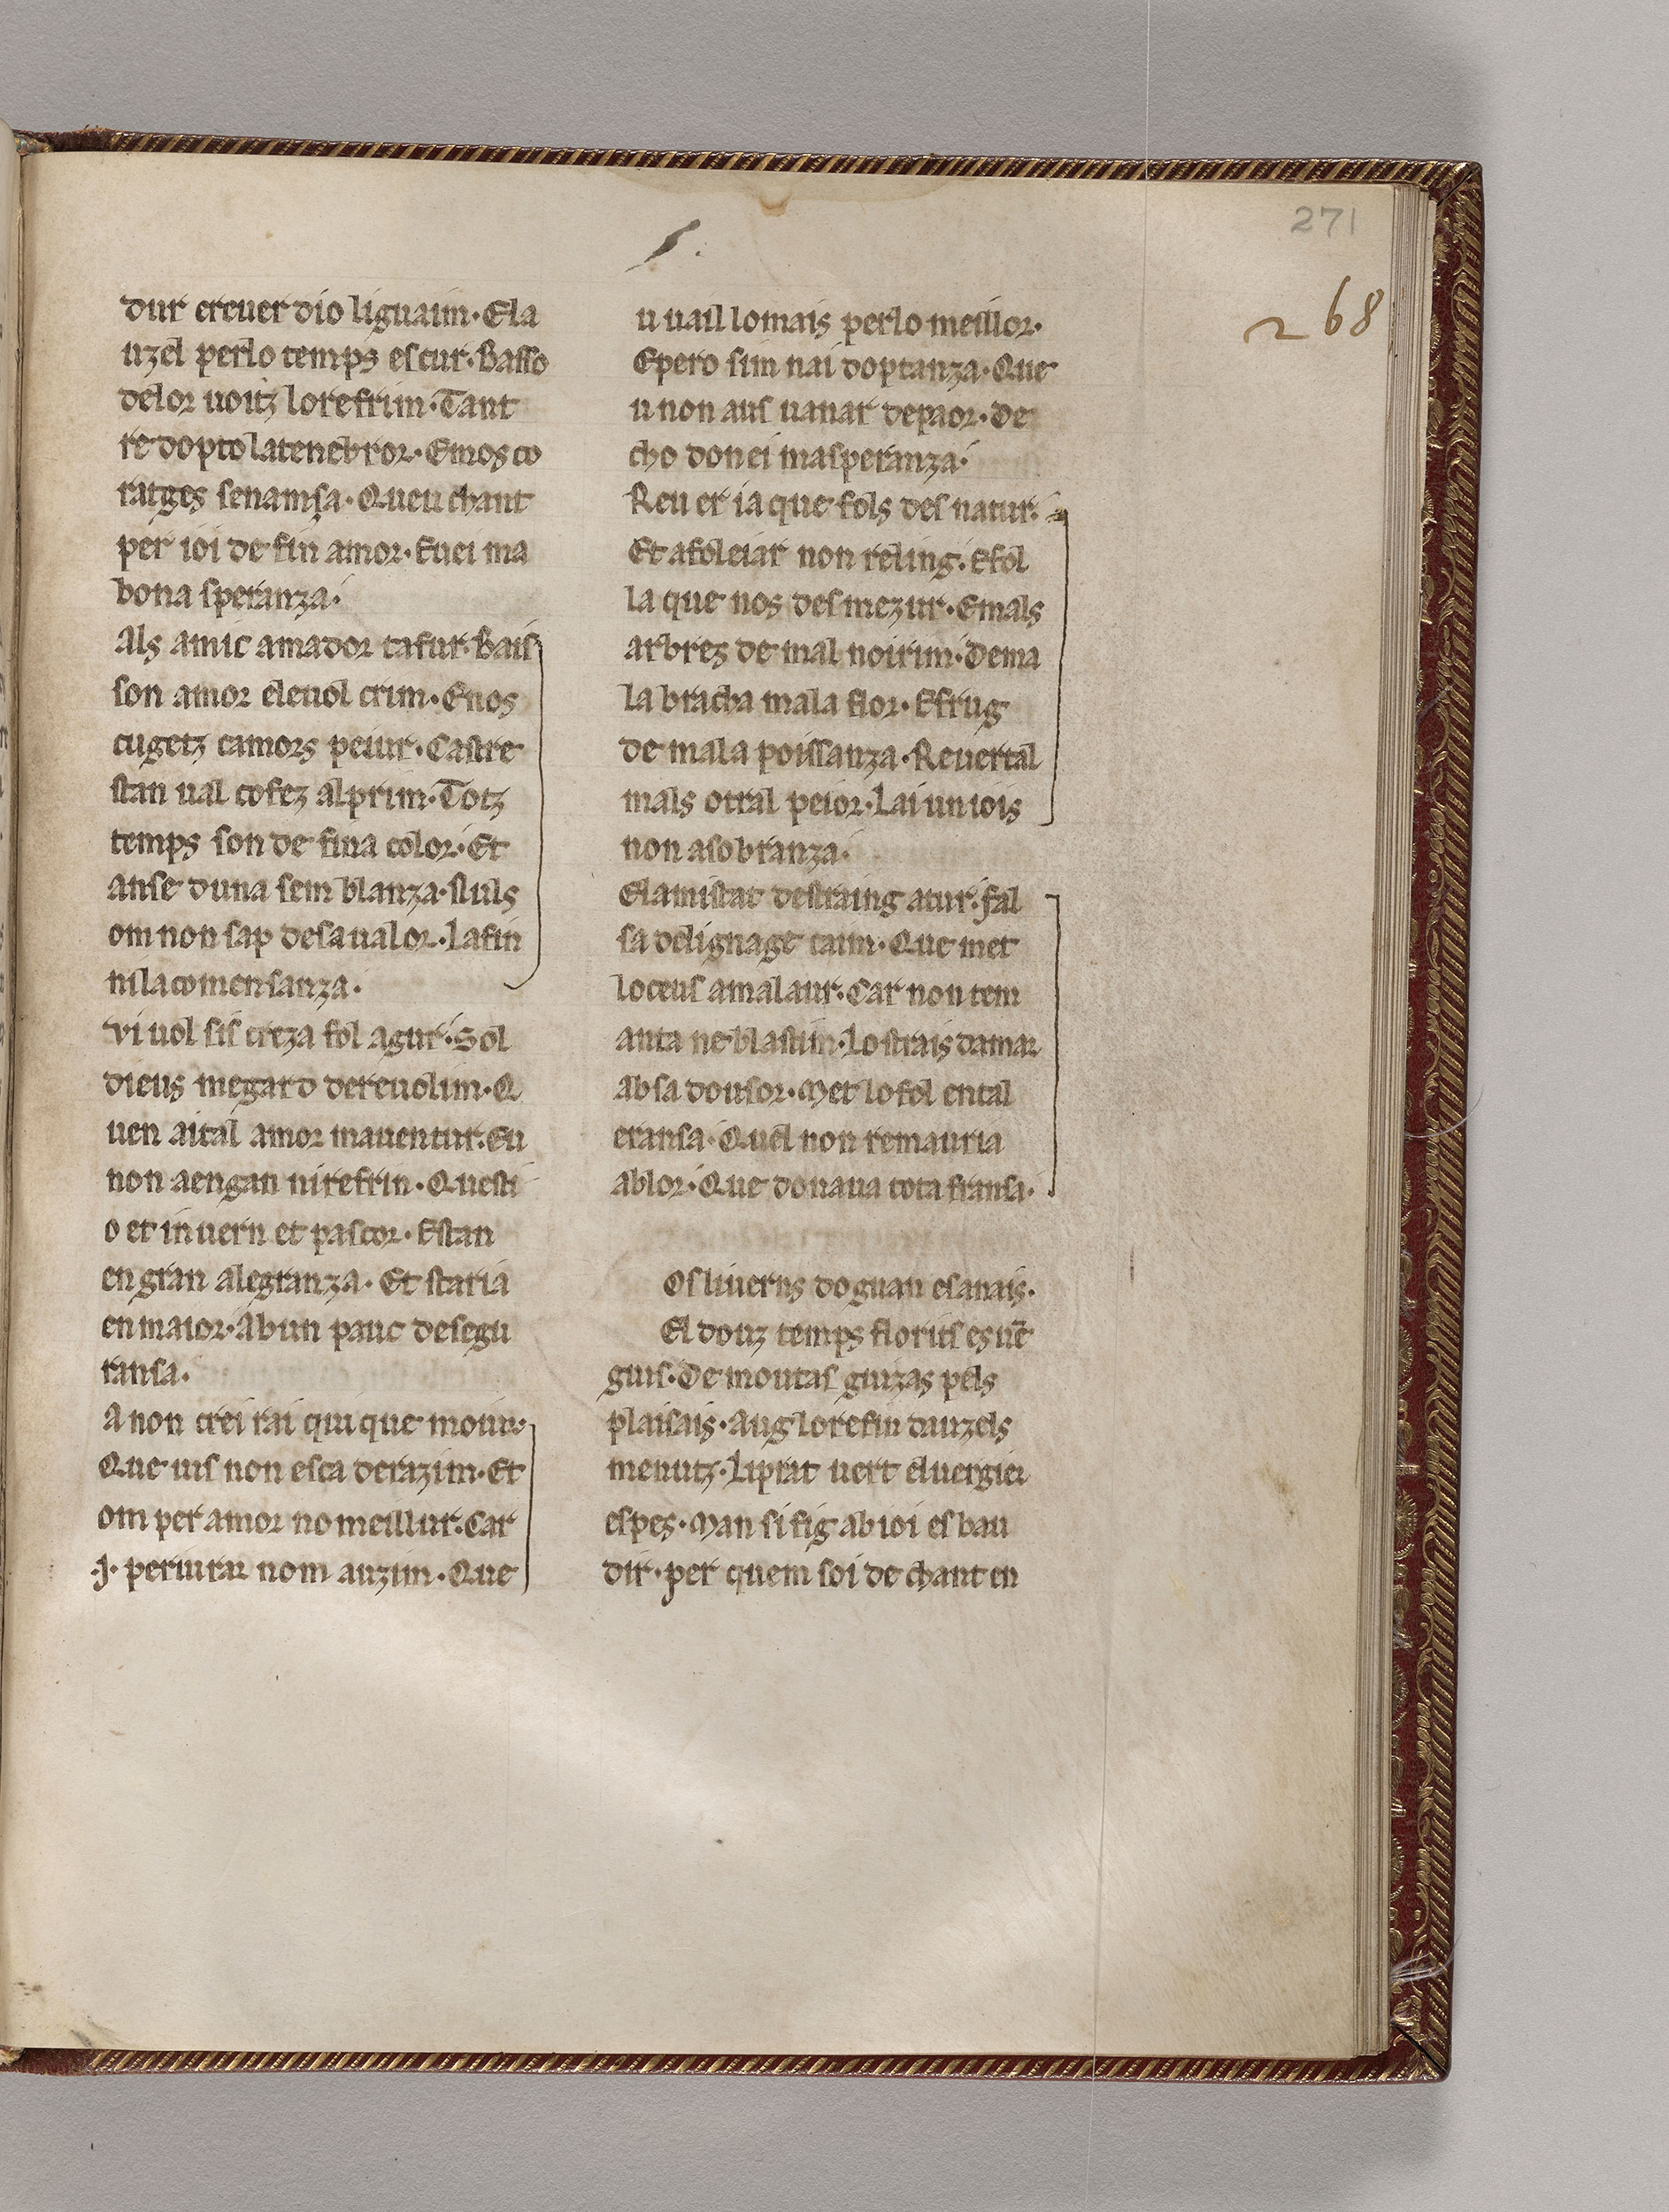 271
268
dur creuer dio liguaim· Ela
uzel perlo temps escur· Basso
delor uoitz lorefrim· Tant
re dopto latenebror· Emos co
ratges senamsa· Queu chant
per ioi de fin amor· Euei ma
bona speranza·
Als amic amador tafur· Bais
son amor eleuol crim· Enos
cugetz camors peiur· Castre
stan ual cofez alprim· Totz
temps son de fina color· Et
anse duna sem blanza· Nuls
om non sap desaualor· Lafin
nilacomensanza·
Vi uol sis creza fol agur· Sol
dieus megard dereuolim· Q
uen aital amor mauentur· Eu
non aengan nirefrin· Questi
o et in uern et pascor· Estan
en gran alegranza· Et staria
en maior· Abun pauc desegu
ransa·
A non crei rai qui que moiur·
Que uis non esca derazim· Et
om per amor no meillur· Car
·J· periurar nom auzim· Que
u uail lomais perlo meillor·
Epero sim nai doptanza· Que
u non aus uanar depaor· De
cho don ei masperanza·
Reu er ia que fols des natur·
Et afoleiar non reling· Efol
la que nos desmezur· Emals
arbres de mal noirim· Dema
la bracha mala flor· Efrug
de mala poissanza· Reuertal
mals otral peior· Lai un iois
non asobranza·
Elamistat destraing atur· fal
sa delignage caim· Que met
loceus amalaur· Car non tem
anta ne blastim· Lostrais damar
absa dousor· Met lo fol ental
eransa· Quel non remauria
ablor· Que donaua tota fransa·
Os liuerns doguan es anais·
El douz temps floritz es uē
gus· De moutas guizas pels
plaisais· Aug lorefin dauzels
menutz· Liprat uert eluergier
espes· Man si fig ab ioi esbau
dir· per quem soi de chant en